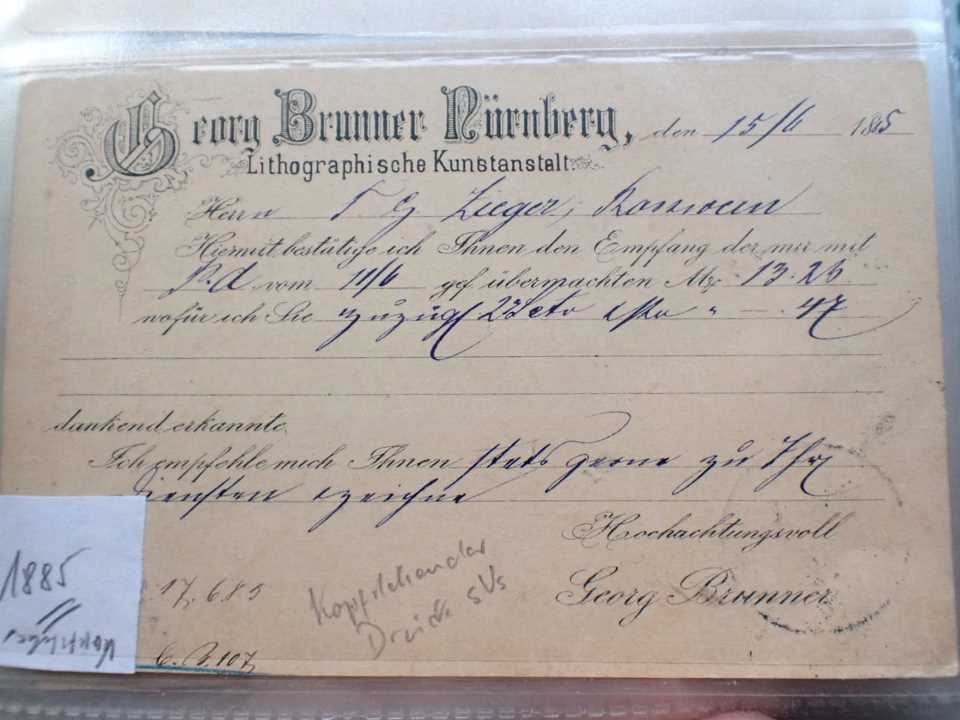 Georg Brunner Nürnberg, den 15/6 1885
Lithographische Kunstanstalt.
Herrn F. G. Zieger, Rosswein
Hiermit bestätige ich Ihnen den Empfang der mir mit
P.A vom 11/6 gef. übermachten Mk 13.26
wofür ich Sie zuzügl 2% Cto " — . 47
dankend erkannte.
Ich empfehle mich Ihnen stets gerne zu Ihr
Diensten & zeichne
Hochachtungsvoll
Georg Brunner
17.6.85
Kopfstehender
Druck
C. B. 107
1885